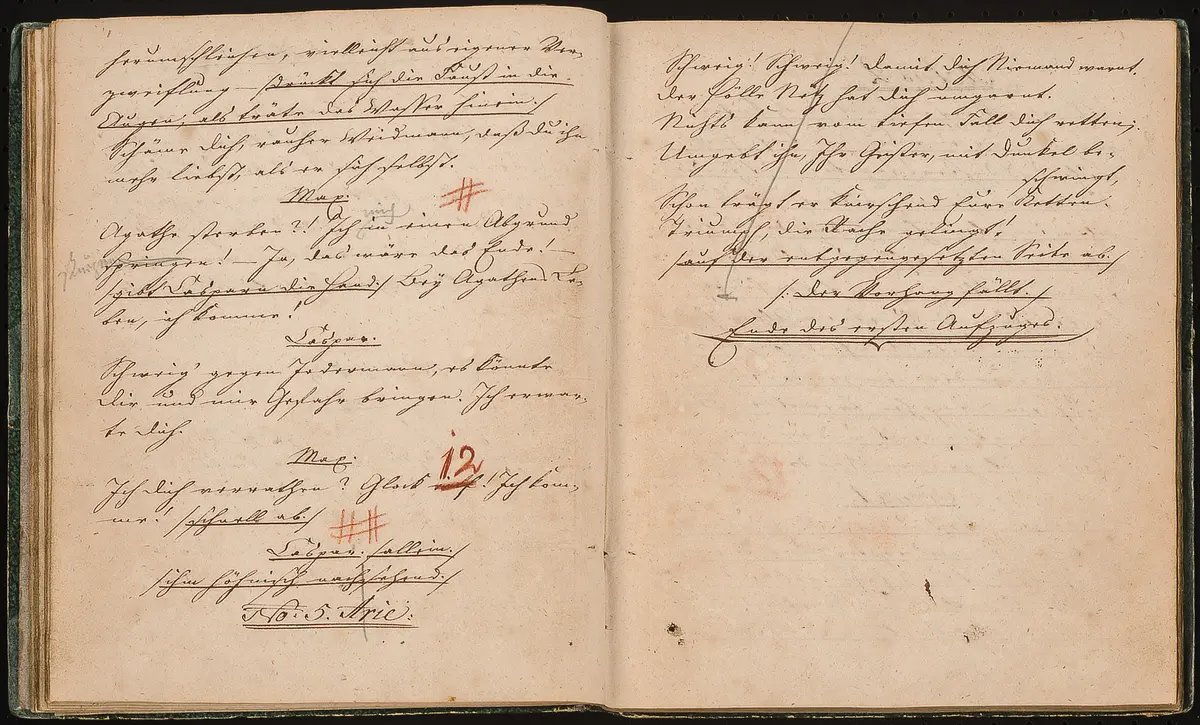 herumschleichen, vielleicht aus eigener Ver-
zweiflung /:drückt sich die Faust in die
Augen, als träte das Wasser hinein:/
Schäme dich, rauher Weidmann, daß du ihn
mehr liebst, als er sich selbst.
Max.
mich
Agathe sterben?! Ich in einen Abgrund
stürzen springen! – Ja, das wäre das Ende! –
/:gibt Casparn die Hand:/ Bey Agathens Le-
ben, ich komme!
Caspar.
Schweig' gegen Jedermann, es könnte
dir und mir Gefahr bringen. Ich erwar-
te dich.
Max.
12
Ich dich verrathen? Glock! Ich kom-
me! /:schnell ab:/
Caspar. /:allein:/
/:ihm höhnisch nachsehend:/
No: 5. Arie:
Schweig! Schweig! damit dich Niemand warnt.
Der Hölle Netz hat dich umgarnt.
Nichts kann vom tiefen Fall dich retten;
Umgebt ihn, Ihr Geister, mit Dunkel be-
schwingt,
Schon trägt er knirschend Eure Ketten.
Triumph, die Rache gelingt!
/:auf der entgegengesetzten Seite ab:/
/:Der Vorhang fällt:/
Ende des ersten Aufzuges.